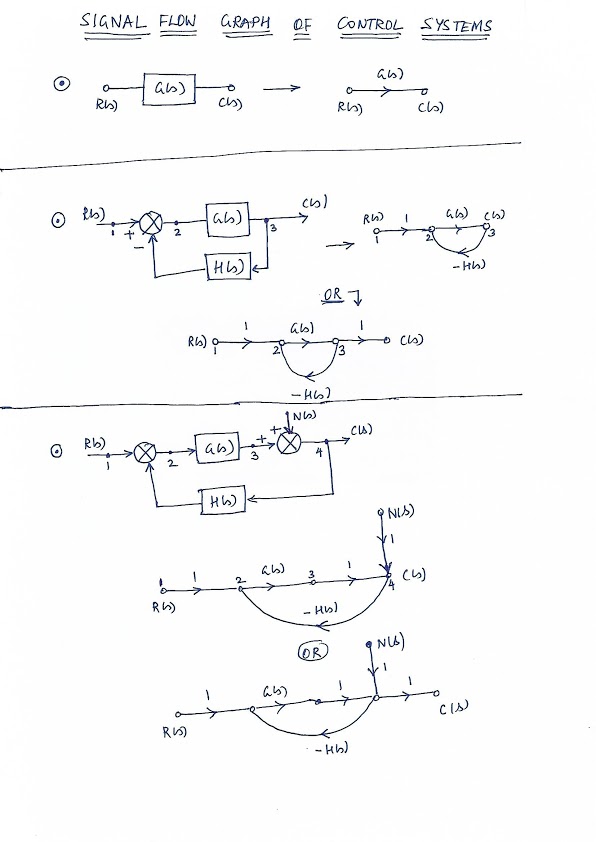 SIGNAL FLOW GRAPH OF CONTROL SYSTEMS
R(s) G(s) C(s)
G(s)
R(s) C(s)
R(s) 1 + - 2 G(s) 3 C(s)
H(s)
R(s) 1 1 2 G(s) C(s) 3
-H(s)
OR
R(s) 1 1 2 G(s) 3 1 C(s)
-H(s)
R(s) 1 2 G(s) 3 + + N(s) 4 C(s)
H(s)
N(s)
1
1 1 2 G(s) 3 1 4 C(s)
R(s)
-H(s)
OR
N(s)
1
1 G(s) 1 1
R(s) C(s)
-H(s)